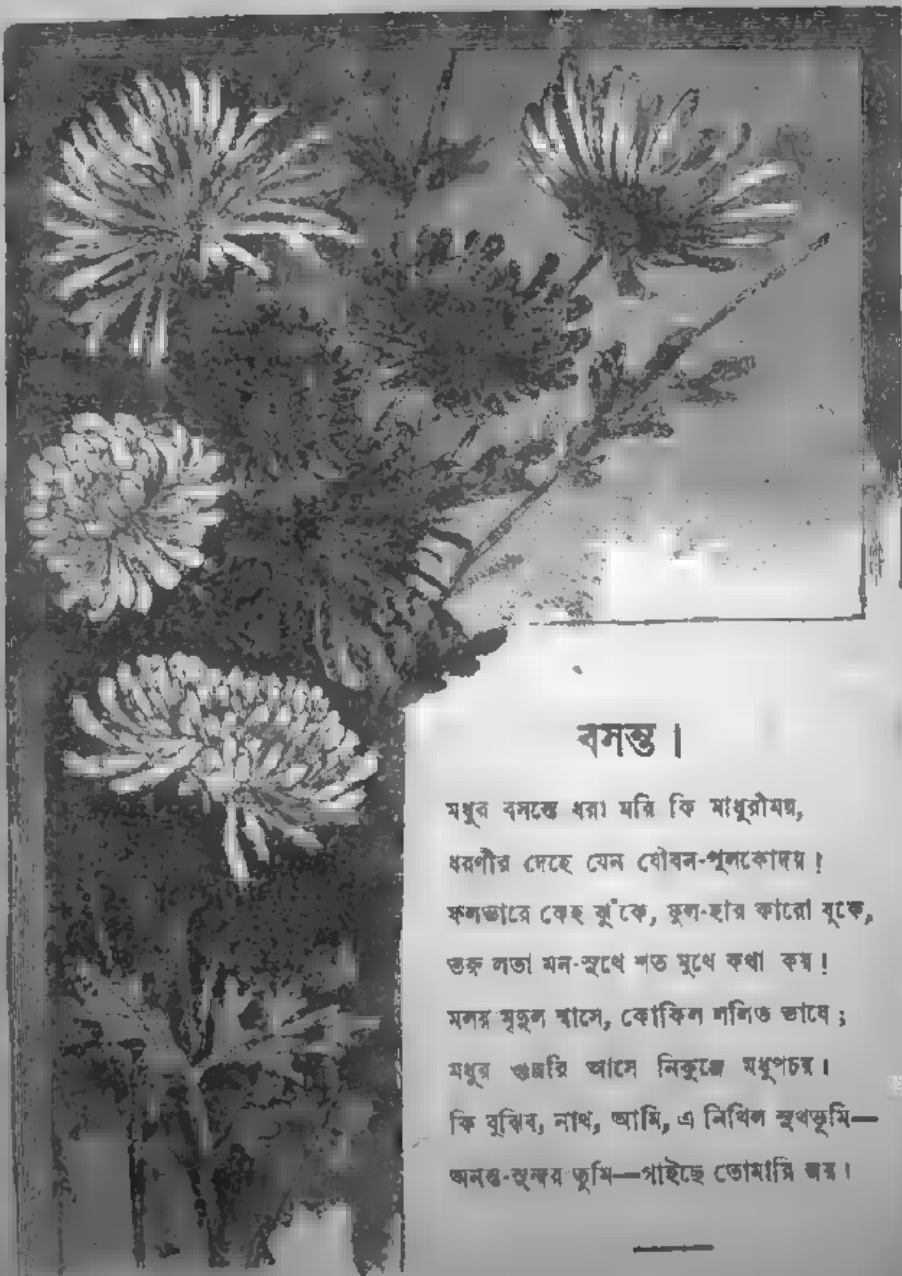 বসন্ত।
মধুর বসন্তে ধরা মরি কি মাধুরীময়,
ধরণীর দেহে যেন যৌবন-পুলকোদয়!
ফলভারে কেহ ঝুঁকে, ফুল-হার কারো বুকে,
তরু লতা মন-সুখে শত মুখে কথা কয়!
মলয় মৃদুল শ্বাসে, কোকিল ললিত ভাষে;
মধুর গুঞ্জরি আসে নিকুঞ্জে মধুপচয়।
কি বুঝিব, নাথ, আমি, এ নিখিল সুখভূমি—
অনন্ত-সুন্দর তুমি—গাইছে তোমারি জয়।